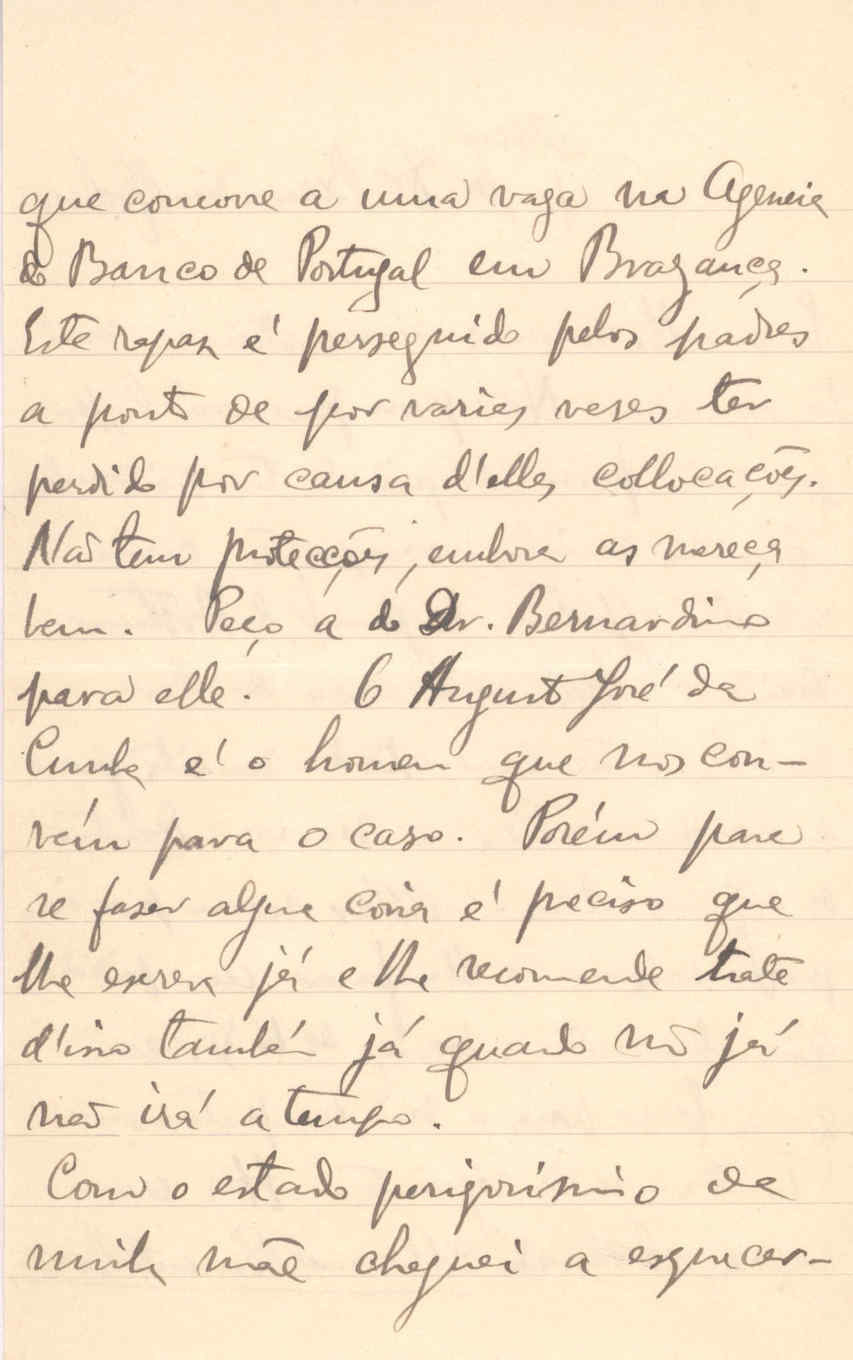 que concorre a uma vaga na Agencia
do Banco de Portugal em Bragança.
Este rapaz é perseguido pelos padres
a ponto de por varias vezes ter
perdido por causa d'elles collocações.
Não tem protecções, embora as mereça
bem. Peço a do Dr. Bernardino
para elle. O Augusto José da
Cunha é o homem que nos con-
vém para o caso. Porém para
se fazer alguma coisa é preciso que
lhe escreva já e lhe recomende trate
d'isso também já quando não já
não irá a tempo.
Com o estado perigosissimo de
minha mãe cheguei a esquecer-